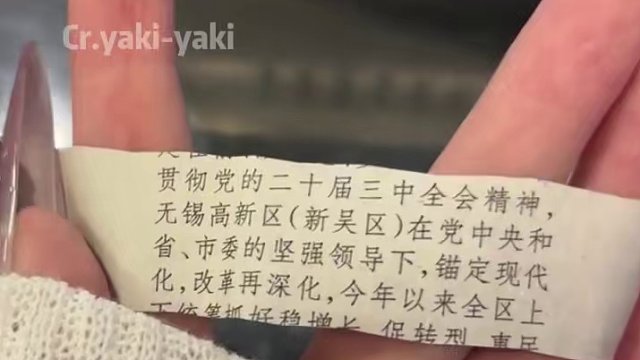 Cr.yaki-yaki
贯彻党的二十届三中全会精神,
无锡高新区(新吴区)在党中央和
省、市委的坚强领导下,锚定现代
化,改革再深化,今年以来全区上
下统筹抓好稳增长、促转型、惠民